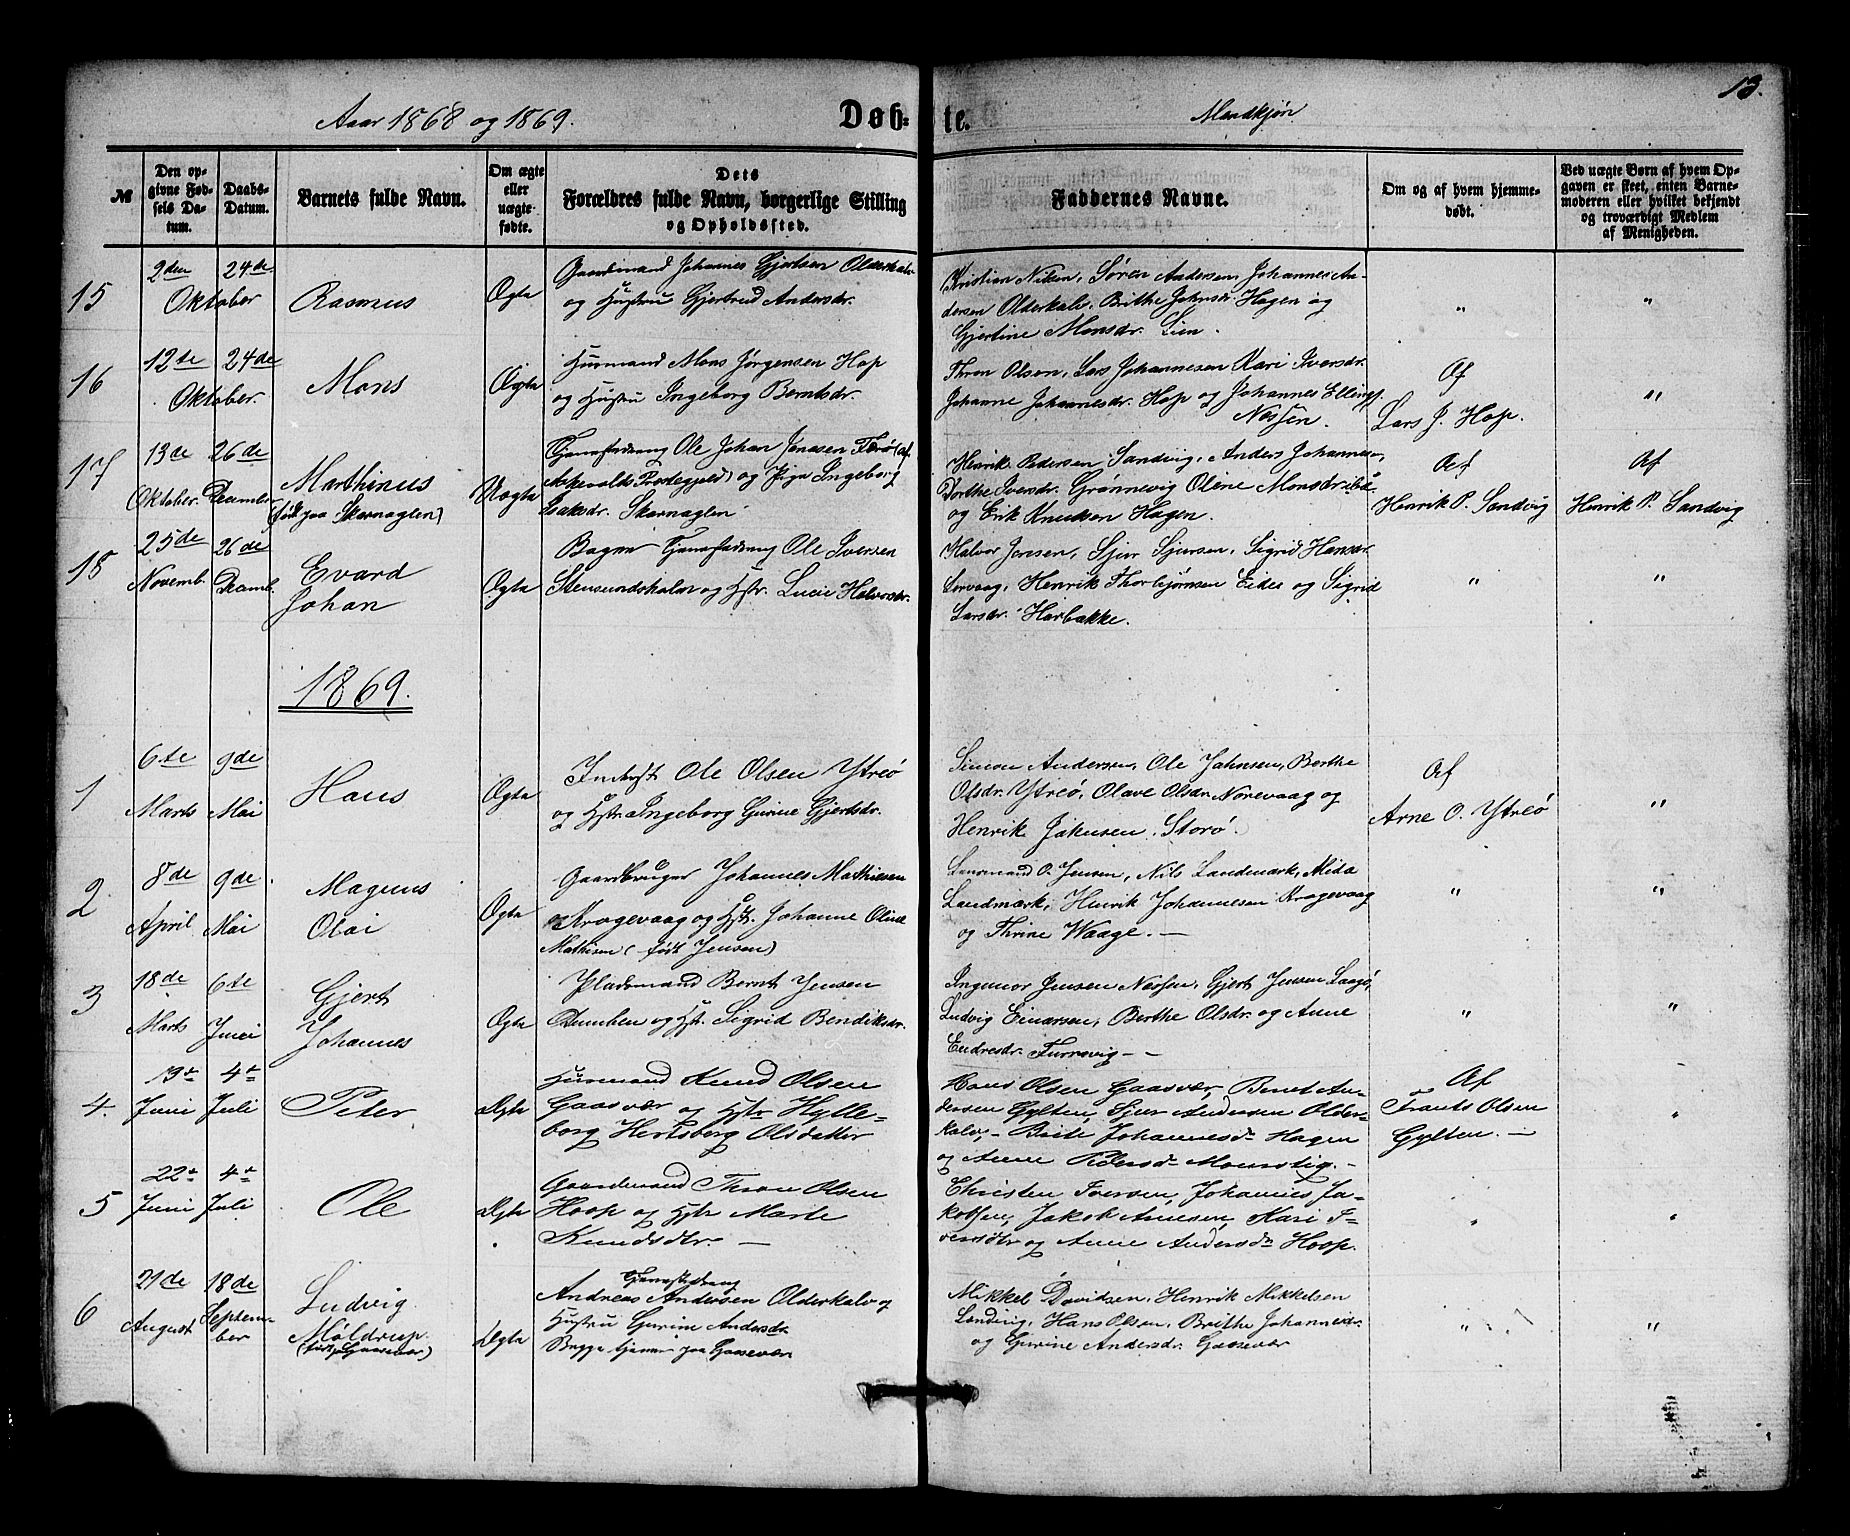 Aaar 1868 og 1869. Døb-te. Mandkjøn 13.
№
Den opgivne Fødsels Datum.
Daabs-Datum.
Barnets fulde Navn.
Om ægte eller uægte fødte.
Dets Forældres fulde Navn, borgerlige Stilling og Opholdssted.
Faddernes Navne.
Om og af hvem hjemmedøbt.
Ved uægte Børn af hvem Opgaven er skeet, enten Barnemoderen eller hvilket bekjendt og troværdigt Medlem af Menigheden.
15
2den 24de
Oktober
Rasmus
Ægte
Gaardmand Johannes Gjertsen Olderkalv
og Hustru Gjertrud Andersdr.
Kristian Nilsen, Søren Andersen, Johannes An-
dersen Olderkalv, Brithe Johnsdr. Hagen og
Gjertine Monsdr. Lien.
" "
16
12te 24de
Oktober
Mons
Ægte
Husmand Mons Jørgensen Hop
og Hustru Ingeborg Berntsdr.
Thron Olsen, Lars Johannesen Kari Iversdr.
Johanne Johannesdr. Hop og Johannes Ellings.
Nessen.
Af
Lars J. Hop.
"
17
13de 26de
Oktober. December
Marthinus
(født paa Skarnaglen)
Uægte
Tjenestedreng Ole Johan Jensen Færø (af
Askevolds Præstegjeld) og Pige Ingeborg
Isaksdr. Skarnaglen
Henrik Pedersen Sandvig, Anders Johannes-
Dorthe Iversdr. Grønnevig Oline Monsdr. ibd.
og Erik Knudsen Hagen.
Af
Henrik P. Sandvig
Af
Henrik P. Sandvig
18
25de 26de
Novemb. Decemb.
Evard
Johan
Ægte
Tjenestedreng Ole Iversen
Stensundskalv og Hstr. Lucie Halvorsdr.
Halvor Jensen, Sjur Sjursen, Sigrid Hansdr.
Lervaag, Henrik Thorbjørnsen Eidee og Sigrid
Larsdr. Harbakke.
" "
1869.
1
6te 9de
Marts Mai
Hans
Ægte
Inderst Ole Olsen Ytreø
og Hstr. Ingeborg Gurine Gjertsdr.
Simon Andersen, Ole Jahnsen, Berthe
Olsdr. Ytreø, Olave Olsdr. Norevaag og
Henrik Jakusen Storø.
Af
Arne O. Ytreø
"
2
8de 9de
April Mai
Magnus
Olai
Ægte
Gaardbruger Johannes Mathiesen
Kragevaag og Hstr. Johanne Oline
Mathisen (født Jensen)
Lensmand O. Jensen, Nils Landmark, Mida
Landmark, Henrik Johannesen Kragevaag
og Thrine Waage. —
" "
3
18de 6te
Marts Juni
Gjert
Johannes
Ægte
Pladsmand Bernt Jensen
og Hstr. Sigrid Bendiksdr.
Ingemor Jensen Nessen, Gjert Jensen Laagø,
Ludvig Einarsen, Berthe Olsdr. og Anne
Endresdr. Furrevig — —
" "
4
19de 4de
Juni Juli
Peter
Ægte
Husmand Knud Olsen
Gaasvær og Hstr. Hylle-
borg Hertsberg Olsdatter
Hans Olsen Gaasvær, Bernt An-
dersen Gylten, Sjur Andersen Older-
kalv, Brite Johannesdr. Hagen
og Anne Pedersdr. Monsstig. —
Af
Frants Olsen
Gylten. —
"
5
22de 4de
Juni Juli
Ole
Ægte
Gaardmand Thron Olsen
Hoop og Hstr. Marte
Knudsdtr. —
Christen Iversen, Johannes Ja-
kobsen, Jakob Arnesen, Kari I-
versdtr og Anne Andersdr Hoop.
" "
6
21de 18de
August September
Ludvig
Møldrup.
(født paa Gaasvær)
Ægte
Tjenestedreng
Andreas Andersen Olderkalv og
Hustru Gurine Andersdr.
Begge tjener paa Gaasevær
Mikkel Davidsen, Henrik Mikkelsen
Sandvig, Hans Olsen, Brithe Johannesdr.
og Gurine Andersdr. Gaasevær
" "